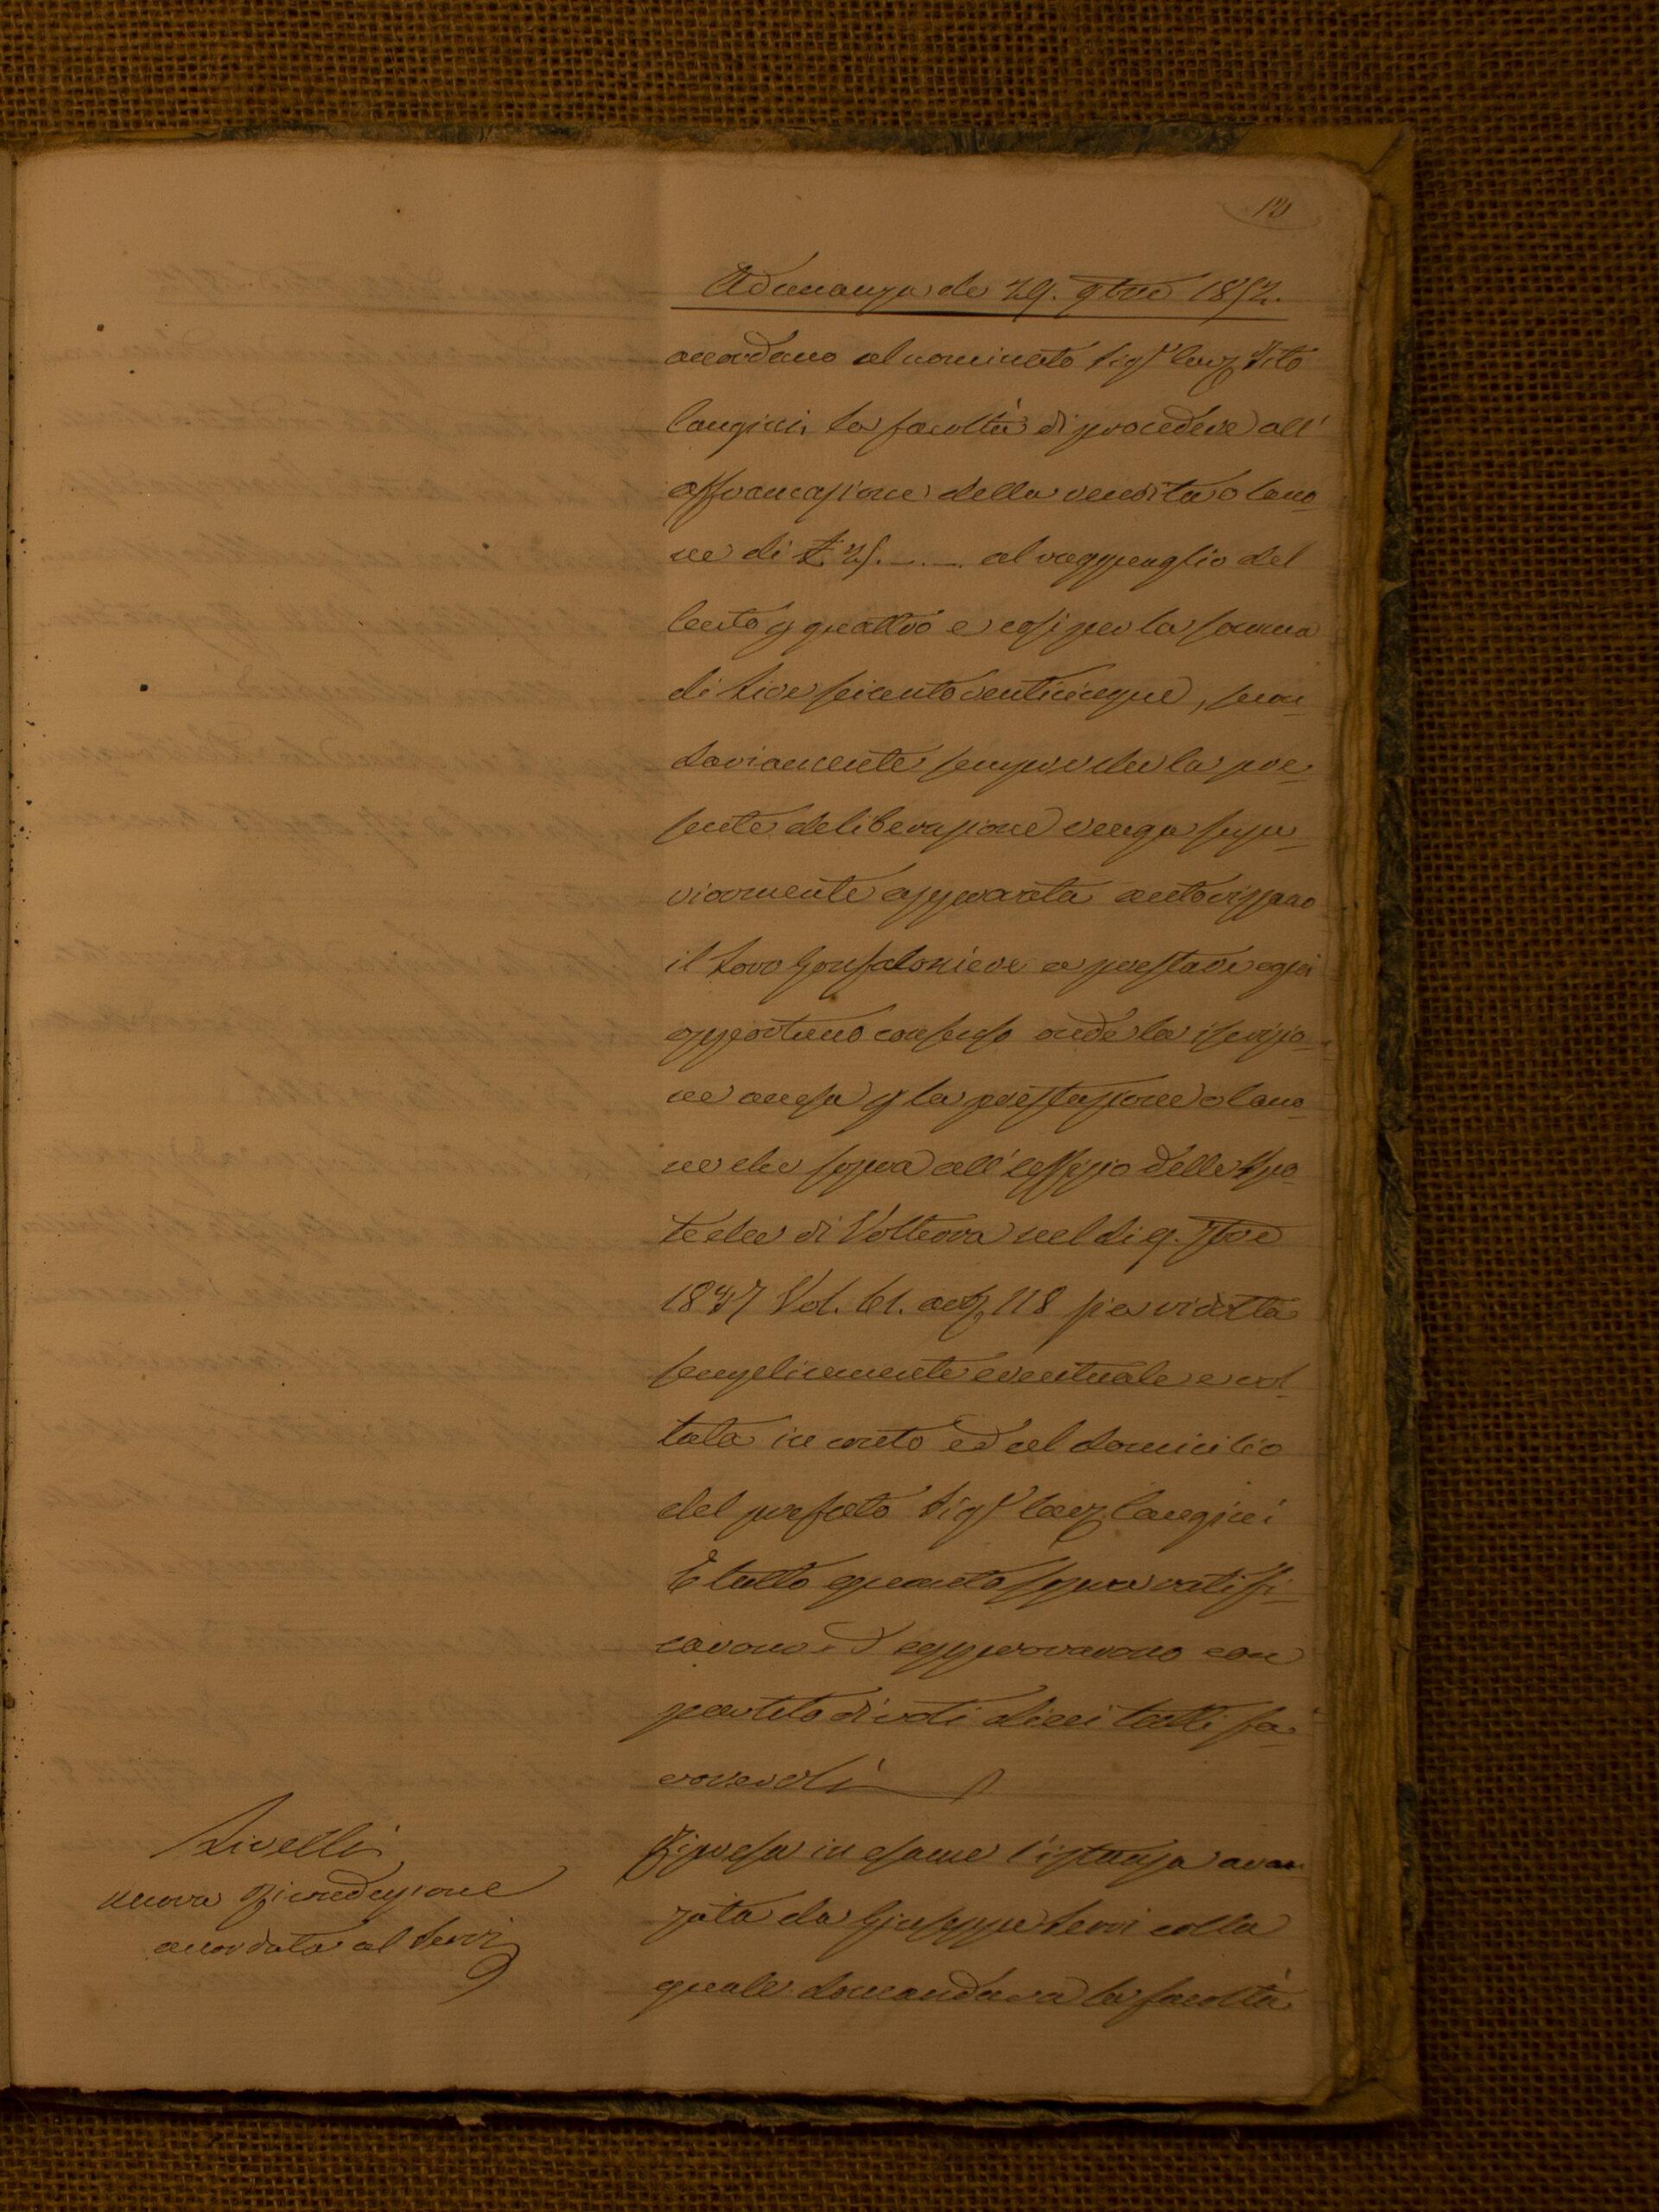 13
Adunanza de 29. 9bre 1852.
accordano al nominato Sigr Canz. Tito
Cangini, la facoltà di procedere all'
affrancazione della rendita o Cano
ne di £ 25. _._._ al ragguaglio del
Cento p quattro e così per la somma
di Lire seicentoventicinque, secon
dariamente sempre che la pre
sente deliberazione venga supe
riormente approvata autorizzano
il Loro Gonfaloniere a prestare ogni
opportuno consenso onde la iscrizio
ne accesa p la prestazione o Cano
ne che sopra all'Uffizio delle Ipo
teche di Volterra nel di 9. 7bre
1847 Vol. 61. art. 118 sia ridotta
semplicemente eventuale e vol
tata in conto ed al domicilio
del prefato Sigr Canz. Cangini
E tutto quanto sopra ratifi
carono ed approvarono con
partito di voti dieci tutti fa
vorevoli
Livelli
nuova Riconduzione
accordata al Serri
Ripresa in esame l'istanza avan
zata da Giuseppe Serri colla
quale domandava la facoltà